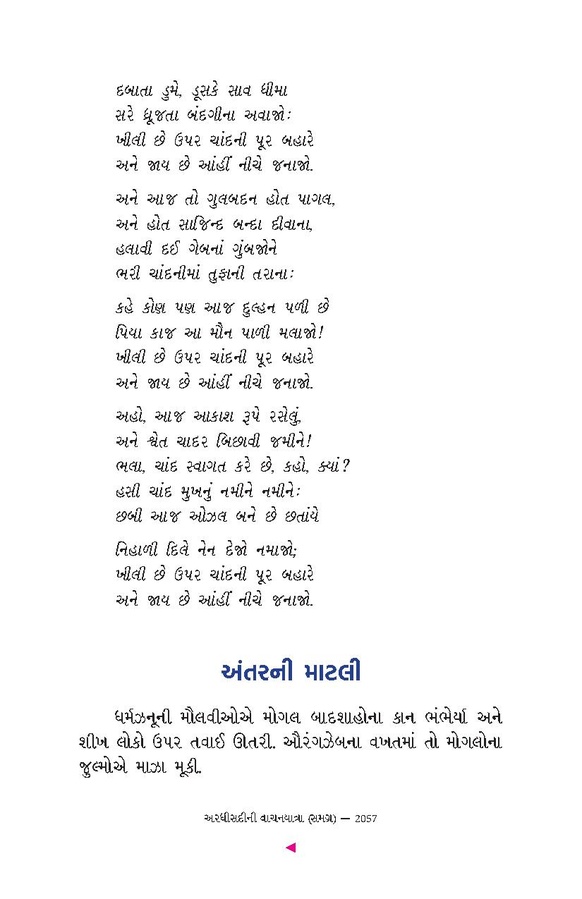 દબાતા ડુમે, ડૂસકે સાવ ધીમા
સરે ધ્રૂજતા બંદગીના અવાજો:
ખીલી છે ઉપર ચાંદની પૂર બહારે
અને જાય છે આંહીં નીચે જનાજો.
અને આજ તો ગુલબદન હોત પાગલ,
અને હોત સાજિન્દ બન્દા દીવાના,
હલાવી દઈ ગેબનાં ગુંબજોને
ભરી ચાંદનીમાં તુફાની તરાના:
કહે કોણ પણ આજ દુલ્હન પળી છે
પિયા કાજ આ મૌન પાળી મલાજો!
ખીલી છે ઉપર ચાંદની પૂર બહારે
અને જાય છે આંહીં નીચે જનાજો.
અહો, આજ આકાશ રૂપે રસેલું,
અને શ્વેત ચાદર બિછાવી જમીને!
ભલા, ચાંદ સ્વાગત કરે છે, કહો, ક્યાં?
હસી ચાંદ મુખનું નમીને નમીને:
છબી આજ ઓઝલ બને છે છતાંયે
નિહાળી દિલે નેન દેજો નમાજો;
ખીલી છે ઉપર ચાંદની પૂર બહારે
અને જાય છે આંહીં નીચે જનાજો.
અંતરની માટલી
ધર્મઝનૂની મૌલવીઓએ મોગલ બાદશાહોના કાન ભંભેર્યા અને
શીખ લોકો ઉપર તવાઈ ઊતરી. ઔરંગઝેબના વખતમાં તો મોગલોના
જુલ્મોએ માઝા મૂકી.
અરધીસદીની વાચનયાત્રા (સમગ્ર) — 2057